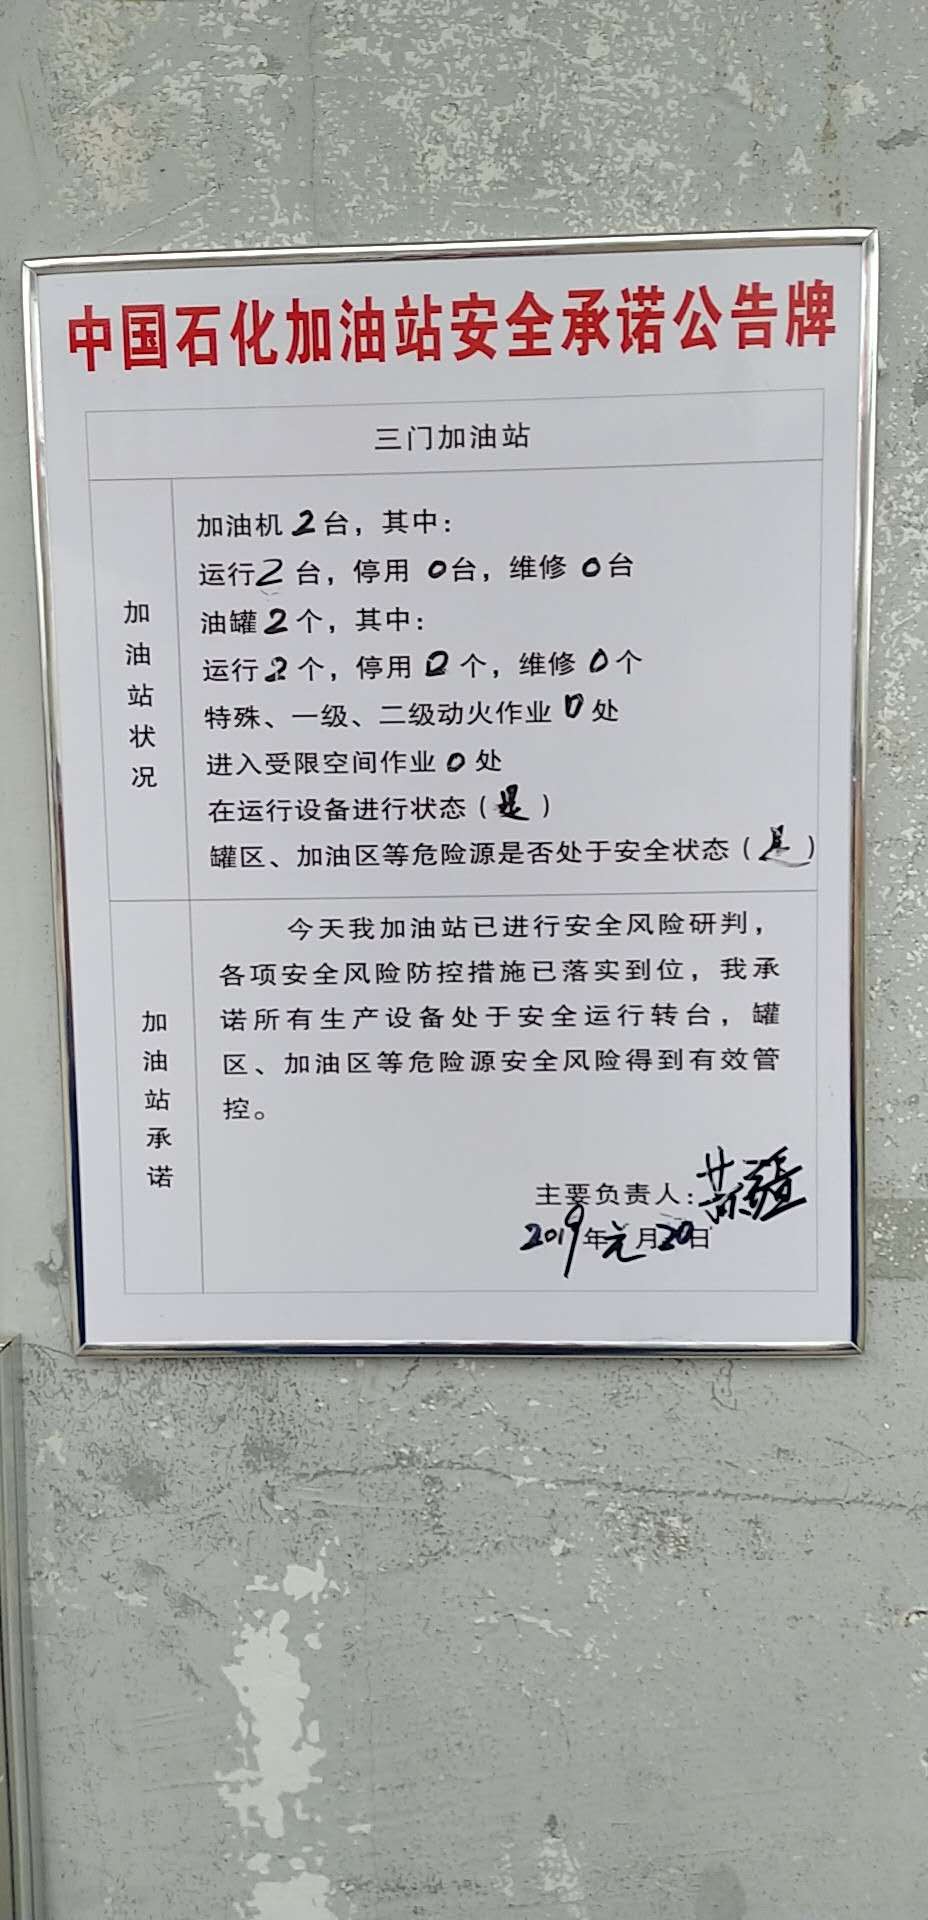 中国石化加油站安全承诺公告牌
三门加油站
加油站状况
加油机2台，其中：
运行2台，停用0台，维修0台
油罐2个，其中：
运行2个，停用0个，维修0个
特殊、一级、二级动火作业0处
进入受限空间作业0处
在运行设备进行状态（是）
罐区、加油区等危险源是否处于安全状态（是）
加油站承诺
今天我加油站已进行安全风险研判，
各项安全风险防控措施已落实到位，我承
诺所有生产设备处于安全运行转台，罐
区、加油区等危险源安全风险得到有效管
控。
主要负责人：
2019年元月20日